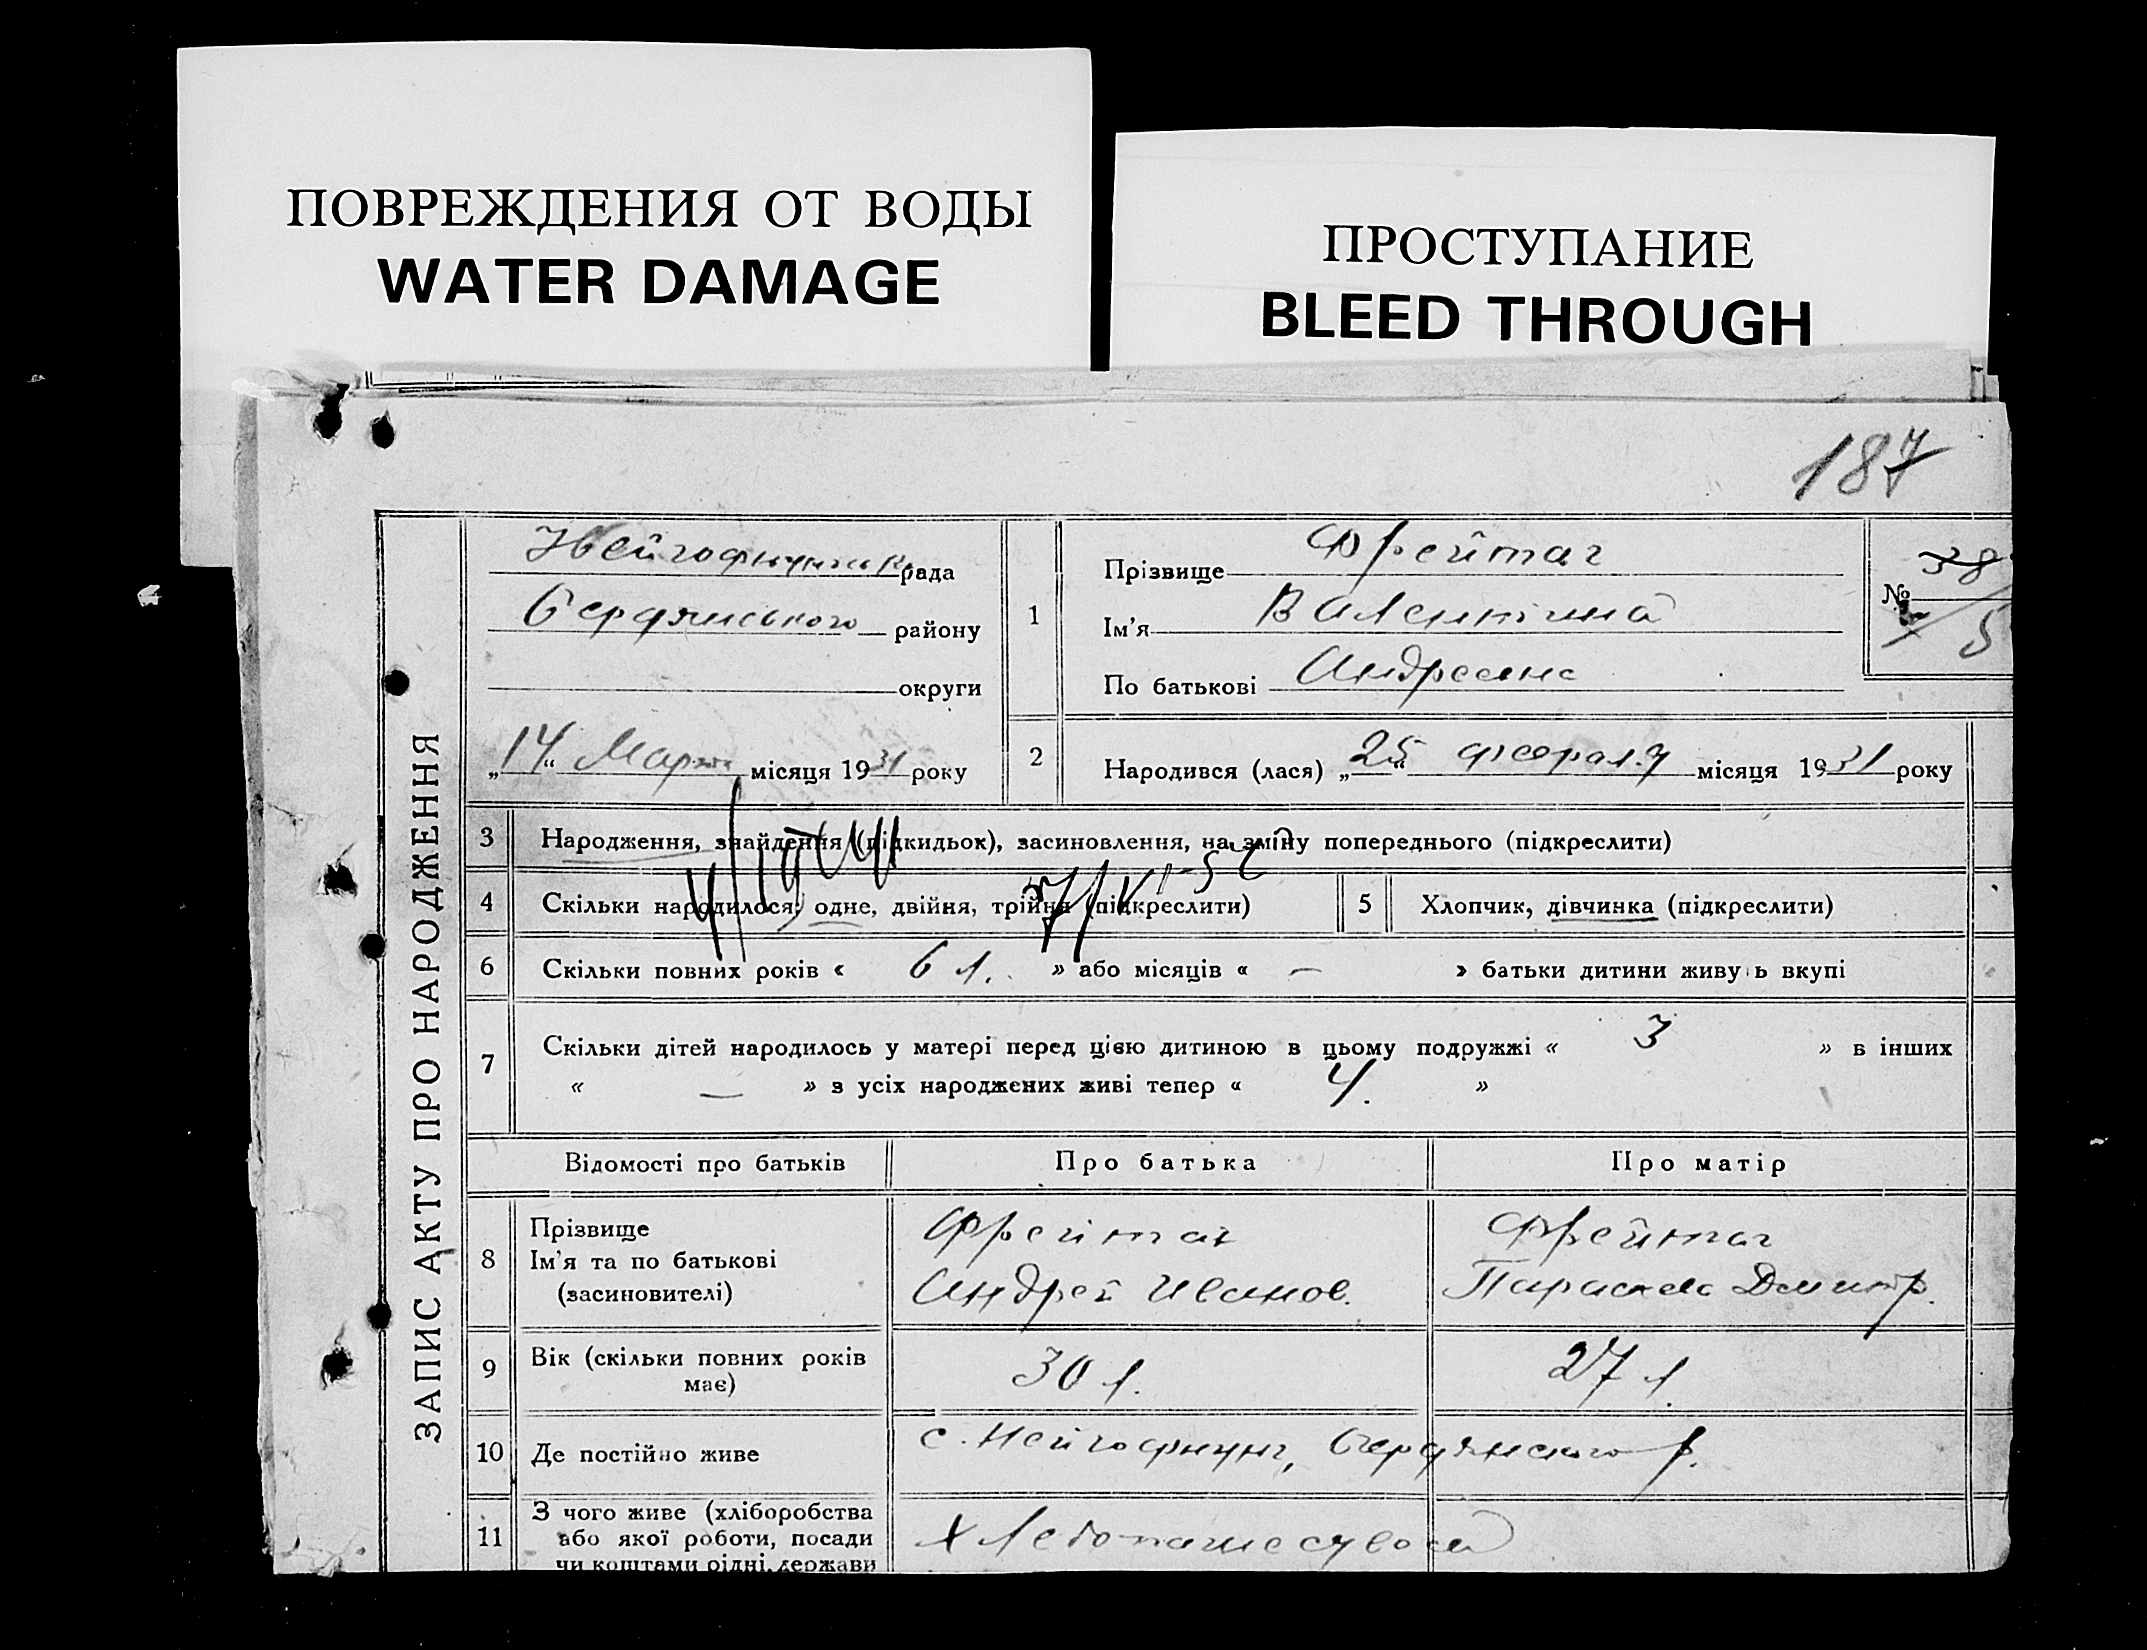 ПОВРЕЖДЕНИЯ ОТ ВОДЫ
WATER DAMAGE
ПРОСТУПАНИЕ
BLEED THROUGH
187
ЗАПИС АКТУ ПРО НАРОДЖЕННЯ
рада
Бердянського району
округи
„14“ Марта місяця 1931 року
1
Прізвище Фрейтаг
Ім'я Валентина
По батькові
№ 38
5
2
Народився (лася) „25“ февраля місяця 1931 року
3 Народження, знайдення (підкидьок), засиновлення, на зміну попереднього (підкреслити)
4 Скільки народилося: одне, двійня, трійня (підкреслити)
5 Хлопчик, дівчинка (підкреслити)
6 Скільки повних років « 6 л. » або місяців « — » батьки дитини живуть вкупі
7 Скільки дітей народилось у матері перед цією дитиною в цьому подружжі « 3 » в інших
« — » з усіх народжених живі тепер « 4. »
Відомості про батьків
Про батька
Про матір
8 Прізвище
Ім'я та по батькові
(засиновителі)
Фрейтаг
Андрей Иванов.
Фрейтаг
Параскева Дмитр.
9 Вік (скільки повних років
має)
30 л.
27 л.
10 Де постійно живе
с. Нейгофнунг, Бердянского р.
11 З чого живе (хліборобства
або якої роботи, посади
чи коштами рідні, держави